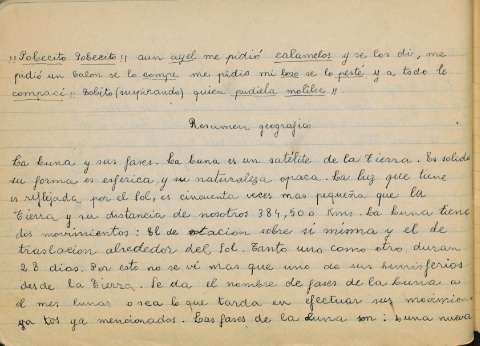 ¡¡Pobecito Pobecito!! aun ayel me pidió calamelos y se los di, me
pidió un balon se lo compe me pidio mi lozo se lo pesté y a todo lo
compací ¡¡Pobito (suspirando) quien pudiela molilse!!
Resumen geografico
La Luna y sus fases. La Luna es un satélite de la Tierra. Es solida
su forma es esferica y su naturaleza opaca. La luz que tiene
es reflejada por el Sol, es cincuenta veces mas pequeña que la
Tierra y su distancia de nosotros 384,500 Kms. La Luna tiene
dos movimientos: El de rotacion sobre si misma y el de
traslacion alrededor del Sol. Tanto uno como otro duran
28 dias. Por esto no se vé mas que uno de sus hemisferios
desde la Tierra. Se da el nombre de fases de la Luna a
el mes lunar o sea lo que tarda en efectuar sus movimien-
tos ya mencionados. Las fases de la Luna son: Luna nueva